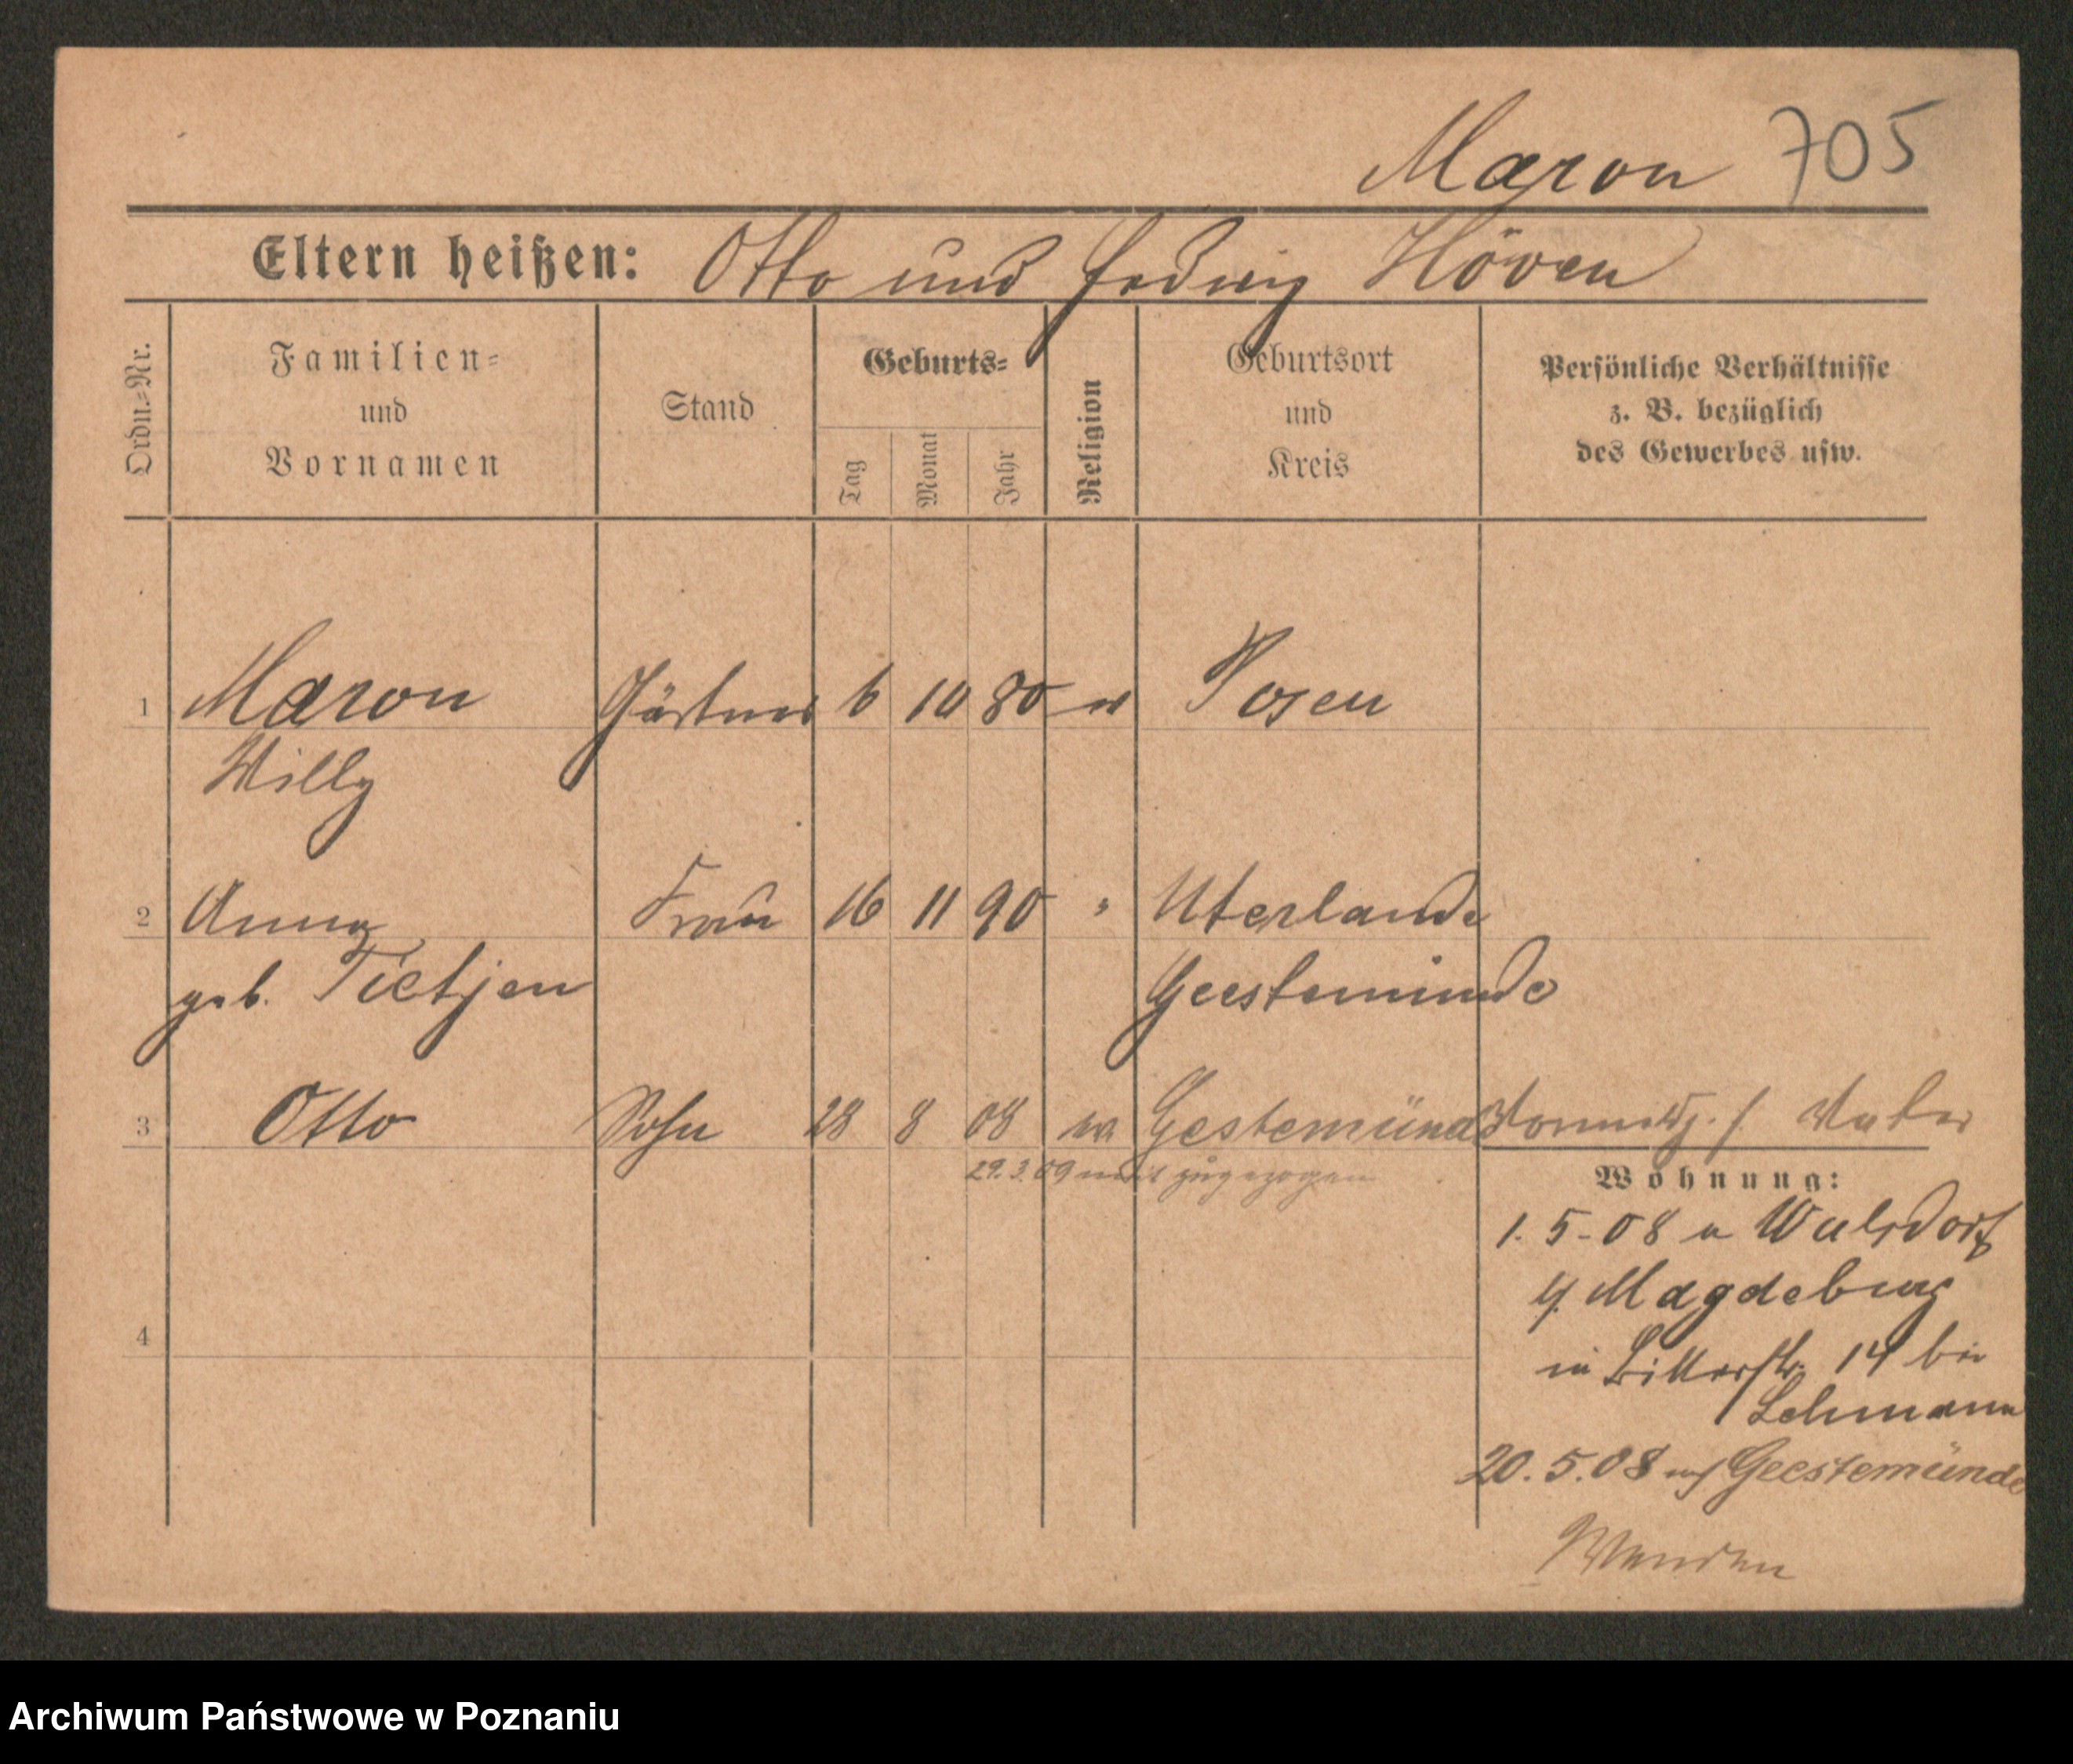 Maron 705
Eltern heißen: Otto und Hedwig Höven
Ordn.-Nr.
Familien-
und
Vornamen
Stand
Geburts-
Tag
Monat
Jahr
Religion
Geburtsort
und
Kreis
Persönliche Verhältnisse
z. B. bezüglich
des Gewerbes usw.
1 Maron Gärtner 6 10 80 Posen
Willy
2 Anna Frau 16 11 90 " Uterlande
geb. Tietjen Geestemünde
3 Otto Sohn 28 8 08 Gestemünd
29.3.09 zugezogen
Wohnung:
1. 5-08 Wulsdorf
Magdeburg
in 14 bei
Lehmann
20. 5.08 Geestemünde
4
Wenden
Archiwum Państwowe w Poznaniu